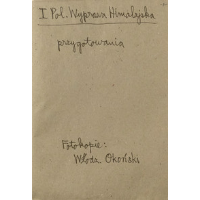 I Pol. Wyprawa Himalajska
przygotowania
Fotokopie:
Włoda Okoński